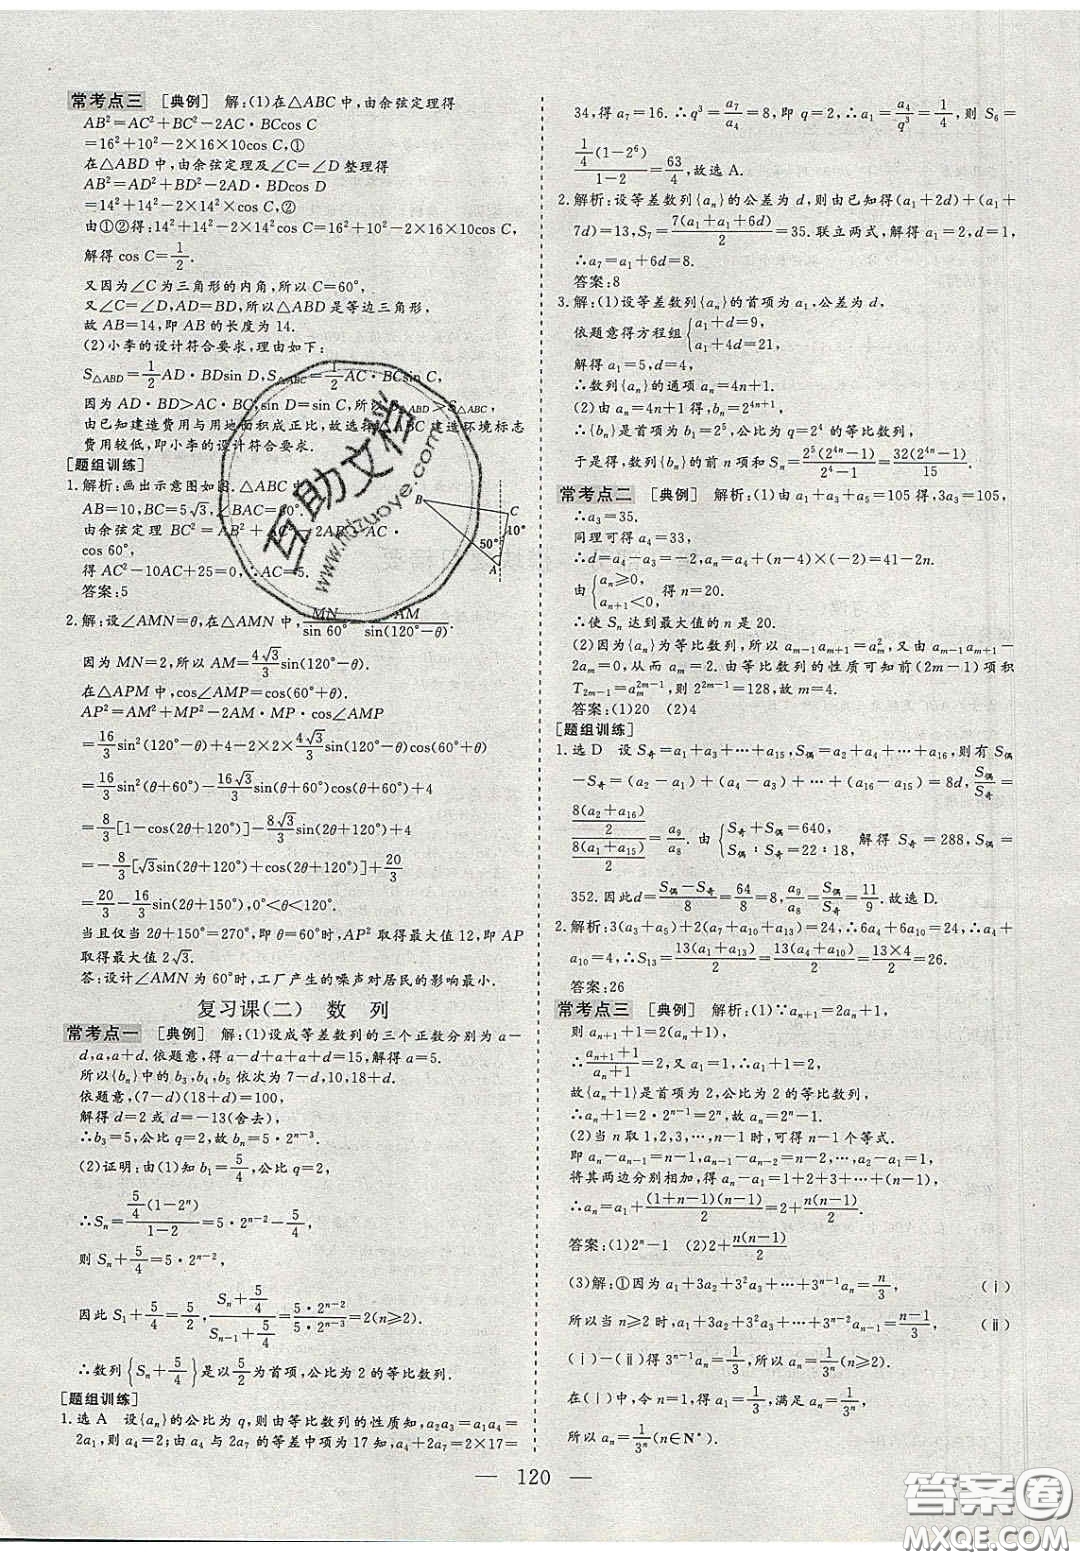 常考点三 [典例] 解:(1)在△ABC中,由余弦定理得
AB²=AC²+BC²-2AC·BCcos C
=16²+10²-2×16×10cos C,①
在△ABD中,由余弦定理及∠C=∠D整理得
AB²=AD²+BD²-2AD·BDcos D
=14²+14²-2×14²cos C,②
由①②得:14²+14²-2×14²cos C=16²+10²-2×16×10cos C,
解得 cos C=1/2.
又因为∠C为三角形的内角,所以∠C=60°,
又∠C=∠D,AD=BD,所以△ABD是等边三角形,
故AB=14,即AB的长度为14.
(2)小李的设计符合要求,理由如下:
S△ABD=1/2 AD·BDsin D,S△ABC=1/2 AC·BCsin C,
因为AD·BD>AC·BC,sin D=sin C,所以S△ABD>S△ABC
由已知建造费用与用地面积成正比,故选择△ABC建造环境标志
费用较低,即小李的设计符合要求.
[题组训练]
1.解析:画出示意图如图.△ABC中,
AB=10,BC=5√3,∠BAC=60°.
由余弦定理 BC²=AB²+AC²-2AB·AC·
cos 60°,
得AC²-10AC+25=0,∴AC=5.
答案:5
B C 10° 50° A
2.解:设∠AMN=θ,在△AMN中,MN/sin 60°=AM/sin(120°-θ).
因为MN=2,所以AM=4√3/3 sin(120°-θ).
在△APM中,cos∠AMP=cos(60°+θ).
AP²=AM²+MP²-2AM·MP·cos∠AMP
=16/3 sin²(120°-θ)+4-2×2×4√3/3 sin(120°-θ)cos(60°+θ)
=16/3 sin²(θ+60°)-16√3/3 sin(θ+60°)cos(θ+60°)+4
=8/3[1-cos(2θ+120°)]-8√3/3 sin(2θ+120°)+4
=-8/3[√3sin(2θ+120°)+cos(2θ+120°)]+20/3
=20/3-16/3 sin(2θ+150°),0°<θ<120°.
当且仅当2θ+150°=270°,即θ=60°时,AP²取得最大值12,即AP
取得最大值2√3.
答:设计∠AMN为60°时,工厂产生的噪声对居民的影响最小.
复习课(二) 数 列
常考点一 [典例] 解:(1)设成等差数列的三个正数分别为a-
d,a,a+d.依题意,得a-d+a+a+d=15,解得a=5.
所以{bₙ}中的b₃,b₄,b₅依次为7-d,10,18+d.
依题意,(7-d)(18+d)=100,
解得d=2或d=-13(舍去),
∴b₃=5,公比q=2,故bₙ=5·2ⁿ⁻³.
(2)证明:由(1)知b₁=5/4,公比q=2,
∴Sₙ=5/4(1-2ⁿ)/(1-2)=5·2ⁿ⁻²-5/4,
则Sₙ+5/4=5·2ⁿ⁻²,
因此S₁+5/4=5/2,(Sₙ+5/4)/(Sₙ₋₁+5/4)=5·2ⁿ⁻²/5·2ⁿ⁻³=2(n≥2).
∴数列{Sₙ+5/4}是以5/2为首项,公比为2的等比数列.
[题组训练]
1.选A 设{aₙ}的公比为q,则由等比数列的性质知,a₂a₃=a₁a₄=
2a₁,则a₄=2;由a₄与2a₇的等差中项为17知,a₄+2a₇=2×17=
34,得a₇=16.∴q³=a₇/a₄=8,即q=2,a₁=a₄/q³=1/4,则S₆=
1/4(1-2⁶)/(1-2)=63/4,故选A.
2.解析:设等差数列{aₙ}的公差为d,则由已知得(a₁+2d)+(a₁+
7d)=13,S₇=7(a₁+a₁+6d)/2=35.联立两式,解得a₁=2,d=1,
∴a₇=a₁+6d=8.
答案:8
3.解:(1)设等差数列{aₙ}的首项为a₁,公差为d,
依题意得方程组{a₁+d=9,a₁+4d=21,
解得a₁=5,d=4,
∴数列{aₙ}的通项aₙ=4n+1.
(2)由aₙ=4n+1得,bₙ=2⁴ⁿ⁺¹,
∴{bₙ}是首项为2⁵,公比为q=2⁴的等比数列,
于是得,数列{bₙ}的前n项和Sₙ=2⁵(2⁴ⁿ-1)/(2⁴-1)=32(2⁴ⁿ-1)/15.
常考点二 [典例] 解析:(1)由a₁+a₃+a₅=105得,3a₃=105,
∴a₃=35.
同理可得a₄=33,
∴d=a₄-a₃=-2,aₙ=a₄+(n-4)×(-2)=41-2n.
由{aₙ≥0,aₙ₊₁<0,得n=20.
∴使Sₙ达到最大值的n是20.
(2)因为{aₙ}为等比数列,所以aₘ₋₁aₘ₊₁=a²ₘ,又由aₘ₋₁aₘ₊₁-
2aₘ=0,从而aₘ=2.由等比数列的性质可知前(2m-1)项积
T₂ₘ₋₁=aₘ²ᵐ⁻¹,则2²ᵐ⁻¹=128,故m=4.
答案:(1)20 (2)4
[题组训练]
1.选D 设S奇=a₁+a₃+…+a₁₅,S偶=a₂+a₄+…+a₁₆,则有S偶
-S奇=(a₂-a₁)+(a₄-a₃)+…+(a₁₆-a₁₅)=8d,S偶/S奇=
8(a₂+a₁₆)/2 / 8(a₁+a₁₅)/2=a₉/a₈.由{S奇+S偶=640,S偶:S奇=22:18,解得S奇=288,S偶=
352.因此d=(S偶-S奇)/8=64/8=8,a₉/a₈=S偶/S奇=11/9.故选D.
2.解析:3(a₃+a₅)+2(a₇+a₁₀+a₁₃)=24,∴6a₄+6a₁₀=24,∴a₄+
a₁₀=4,∴S₁₃=13(a₁+a₁₃)/2=13(a₄+a₁₀)/2=13×4/2=26.
答案:26
常考点三 [典例] 解析:(1)∵aₙ₊₁=2aₙ+1,
则aₙ₊₁+1=2(aₙ+1),
∴(aₙ₊₁+1)/(aₙ+1)=2,又a₁=1,∴a₁+1=2,
故{aₙ+1}是首项为2,公比为2的等比数列,
∴aₙ+1=2·2ⁿ⁻¹=2ⁿ,故aₙ=2ⁿ-1.
(2)当n取1,2,3,…,n-1时,可得n-1个等式.
即aₙ-aₙ₋₁=n-1,aₙ₋₁-aₙ₋₂=n-2,…,a₂-a₁=1,
将其两边分别相加,得aₙ-a₁=1+2+3+…+(n-1),
∴aₙ=a₁+(1+n-1)(n-1)/2=2+n(n-1)/2.
答案:(1)2ⁿ-1 (2)2+n(n-1)/2
(3)解:①因为a₁+3a₂+3²a₃+…+3ⁿ⁻¹aₙ=n/3, (ⅰ)
所以当n≥2时,a₁+3a₂+3²a₃+…+3ⁿ⁻²aₙ₋₁=(n-1)/3, (ⅱ)
(ⅰ)-(ⅱ)得3ⁿ⁻¹aₙ=1/3,所以aₙ=1/3ⁿ(n≥2).
在(ⅰ)中,令n=1,得a₁=1/3,满足aₙ=1/3ⁿ,
所以aₙ=1/3ⁿ(n∈N*).
120
互助文档
www.hdzuoye.com
答案圈
MXQE.COM